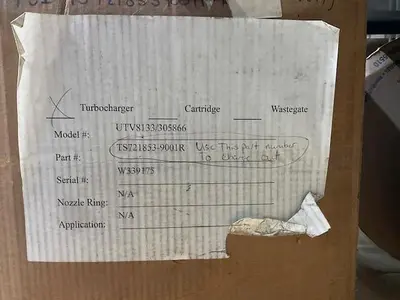 X Turbocharger Cartridge Wastegate
Model #: UTV8133/305866
Part #: TS721853-9001R Use This part number
To charge out
Serial #: W339175
Nozzle Ring: N/A
Application: N/A